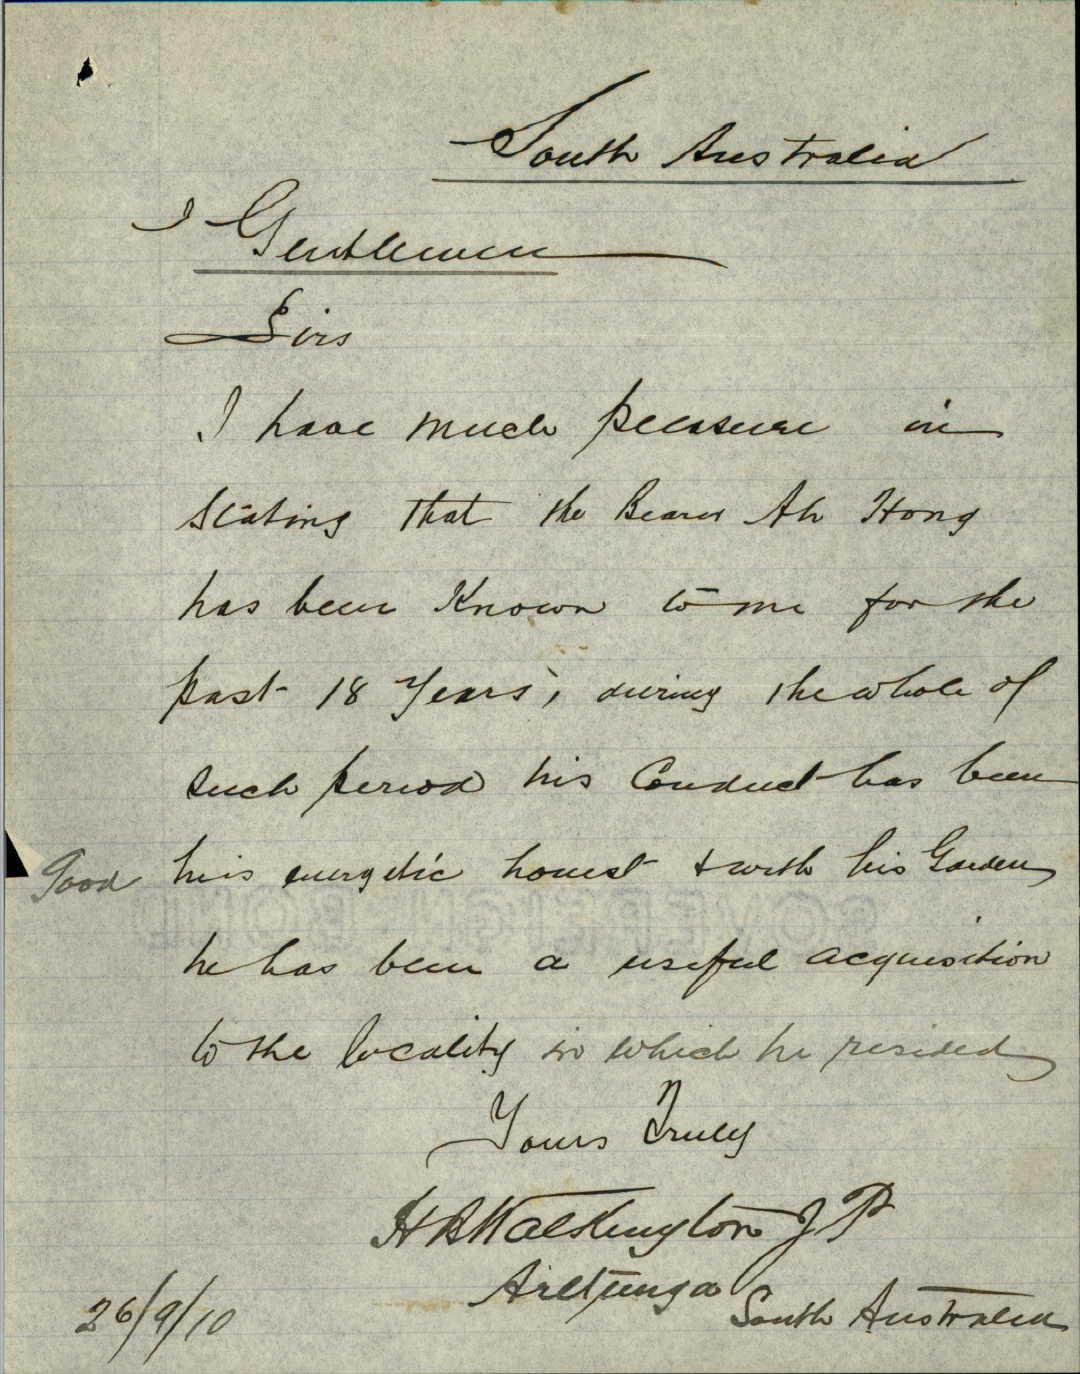 South Australia
Gentlemen
Sirs
I have much pleasure in
stating that the Bearer Ah Hong
has been Known to me for the
past 18 Years, during the whole of
such period his Conduct has been
Good his energetic honest & with his Garden
he has been a useful acquisition
to the locality in which he resided
Yours Truly
H A Walkington J P
Arltunga
South Australia
26/9/10